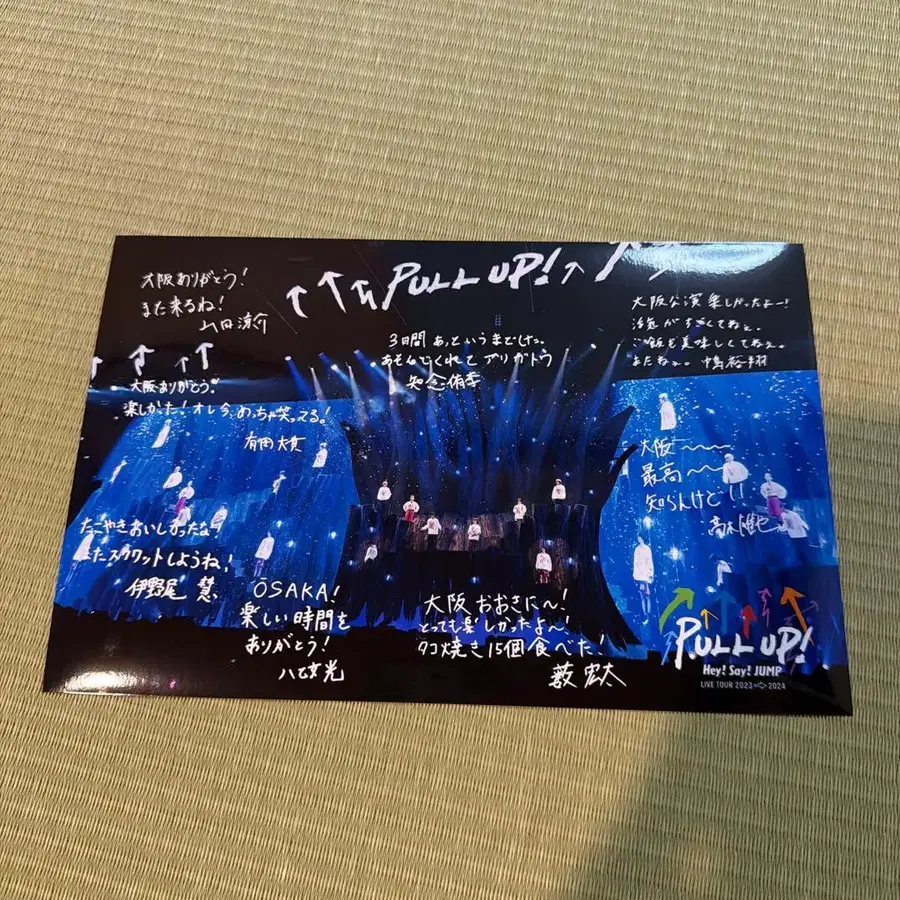 大阪ありがとう!
また来るね!
山田涼介
PULL UP!
3日間あっというまでしたっ。
あそんでくれてアリガトウ
知念侑李
大阪公演楽しかったよー!
活気がすごくてねぇ。
ご飯も美味しくてねぇ。
またねぇ。 中島裕翔
大阪ありがとう!
楽しかった!オレ今、めっちゃ笑ってる!
有岡大貴
大阪〜〜
最高〜〜
知らんけど!!
髙木雄也
たこやきおいしかったな!
またスクワットしようね!
伊野尾 慧
OSAKA!
楽しい時間を
ありがとう!
八乙女光
大阪おおきに〜!
とっても楽しかったよ〜!
タコ焼き15個食べた!
薮 宏太
PULL UP!
Hey! Say! JUMP
LIVE TOUR 2023 2024